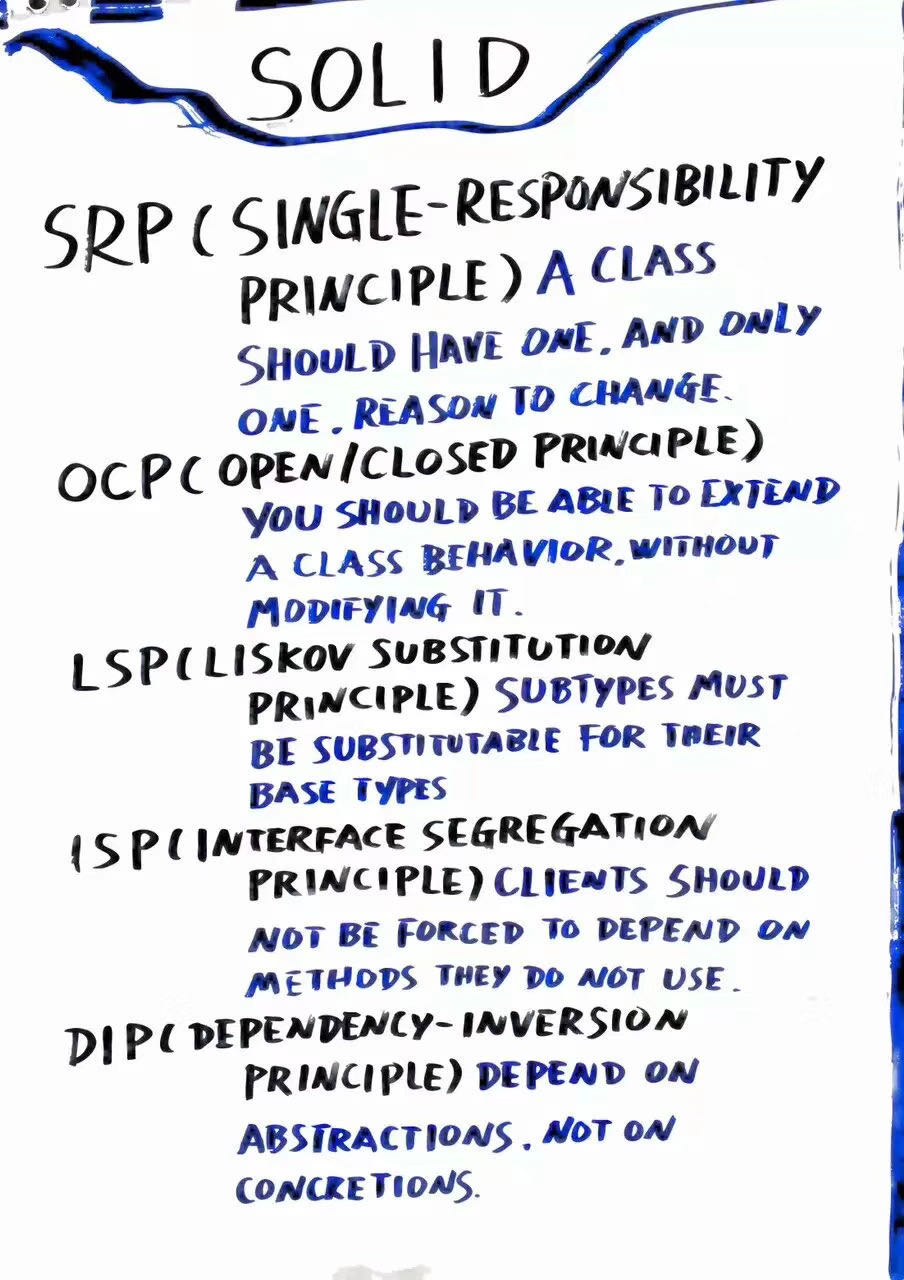 SOLID
SRP(SINGLE-RESPONSIBILITY
PRINCIPLE) A CLASS
SHOULD HAVE ONE, AND ONLY
ONE, REASON TO CHANGE.
OCP(OPEN/CLOSED PRINCIPLE)
YOU SHOULD BE ABLE TO EXTEND
A CLASS BEHAVIOR, WITHOUT
MODIFYING IT.
LSP(LISKOV SUBSTITUTION
PRINCIPLE) SUBTYPES MUST
BE SUBSTITUTABLE FOR THEIR
BASE TYPES
ISP(INTERFACE SEGREGATION
PRINCIPLE) CLIENTS SHOULD
NOT BE FORCED TO DEPEND ON
METHODS THEY DO NOT USE.
DIP(DEPENDENCY-INVERSION
PRINCIPLE) DEPEND ON
ABSTRACTIONS, NOT ON
CONCRETIONS.